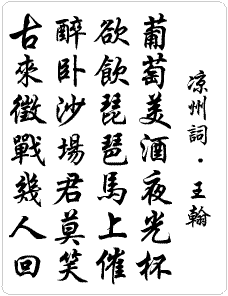 凉州詞·王翰
葡萄美酒夜光杯
欲飲琵琶馬上催
醉卧沙場君莫笑
古來徵戰幾人回